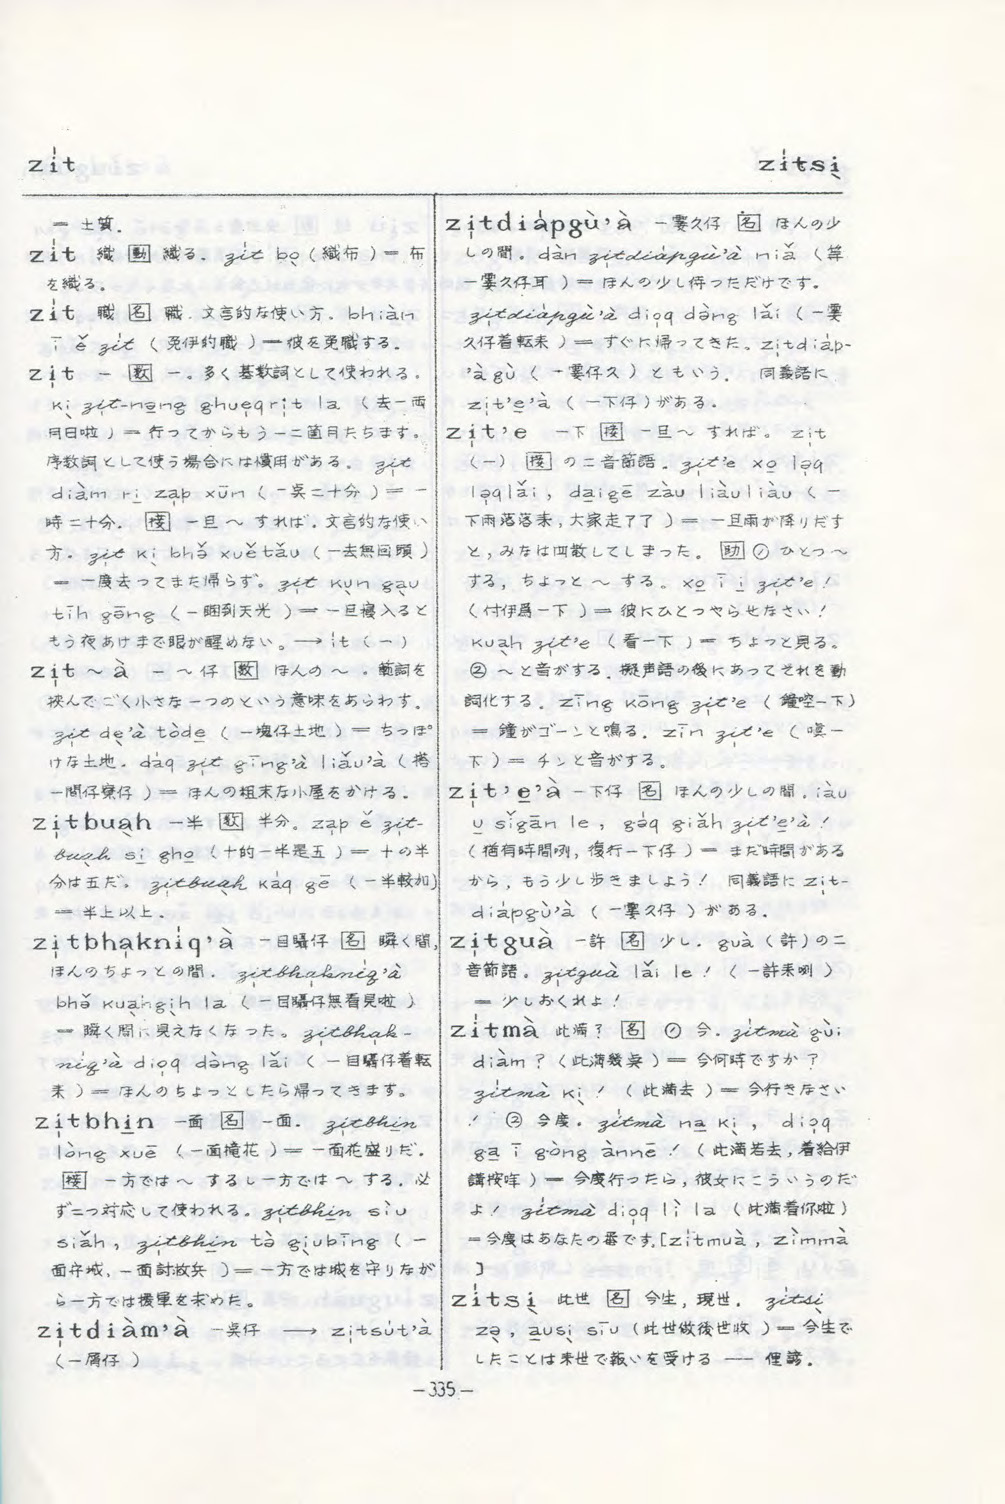 zı̍t
zı̍tsı̣
＝土質.
zı̍t 織 [動] 織る. zı̍t bọ (織布)＝布
を織る。
zı̍t 職 [名] 職. 文言的な使い方. bhiàn
ī ě zı̍t (免伊的職)＝彼を免職する.
zı̣t 一 [数] 一。多く基数詞として使われる.
kı̣̀ zı̣t-nəng ghueqrı̣t la (去一両
月日啦)＝行ってからもう一二箇月たちます。
序数詞として使う場合には慣用がある. zı̣t
diàm rı̣ zap xūn (一点二十分)＝一
時二十分. [接] 一旦〜すれば. 文言的な使い
方. zı̣t kı̣̀ bhə̌ xuětǎu (一去無回頭)
＝一度去ってまた帰らず。zı̣t kụn gạu
tīh gōng (一睏到天光)＝一旦寝入ると
もう夜あけまで眼が醒めない。─→ ı̍t (一)
zı̣t〜à 一〜仔 [数] ほんの〜. 範詞を
挾んでごく小さな一つのという意味をあらわす.
zı̣t dẹ'à tòde (一塊仔土地)＝ちっぽ
けな土地. dáq zı̣t gīng'à liǎu'à (搭
一間仔寮仔)＝ほんの粗末な小屋をかける.
zı̣tbuạh 一半 [数] 半分. zap ě zı̣t-
buạh sı̣ ghọ (十的一半是五)＝十の半
分は五だ. zı̣tbuạh káq gē (一半較加)
＝半上以上.
zı̣tbhạkniq'à 一目𥍉仔 [名] 瞬く間,
ほんのちょっとの間. zı̣tbhạkniq'à
bhə̌ kuạngı̣h la (一目𥍉仔無看見啦)
＝瞬く間に見えなくなった。zı̣tbhạk-
niq'à dioq dəng lǎi (一目𥍉仔着転
来)＝ほんのちょっとしたら帰ってきます。
zı̣tbhı̣n 一面 [名] 一面. zı̣tbhı̣n
lòng xuē (一面攏花)＝一面花盛りだ.
[接] 一方では〜するし一方では〜する. 必
ず二つ対応して使われる。zı̣tbhı̣n siù
siǎh, zı̣tbhı̣n tə̀ gı̣ubīng (一
面守城, 一面討救兵)＝一方では城を守りなが
ら一方では援軍を求めた。
zı̣tdiàm'à 一点仔 ─→ zı̣tsút'à
(一屑仔)
zı̣tdiápgù'à 一霎久仔 [名] ほんの少
しの間. dàn zı̣tdiápgù'à niǎ (等
一霎久仔耳)＝ほんの少し待っただけです.
zı̣tdiápgù'à dioq dəng lǎi (一霎
久仔着転来)＝すぐに帰ってきた。zı̣tdiáp-
'à gù (一霎仔久)ともいう. 同義語に
zı̣t'e'à (一下仔)がある.
zı̣t'e 一下 [接] 一旦〜すれば. zı̣t
(一) [接] の二音節語. zı̣t'e xọ ləq
ləqlǎi, dạigē zàu liàuliàu (一
下雨落落来, 大家走了了)＝一旦雨が降りだす
と, みなは四散してしまった。[助] ① ひとつ〜
する, ちょっと〜する. xọ ī ı̣ zı̣t'e!
(付伊為一下)＝彼にひとつやらせなさい!
kuạh zı̣t'e (看一下)＝ちょっと見る。
② 〜と音がする. 擬声語の後にあってそれを動
詞化する. zīng kōng zı̣t'e (鐘哐一下)
＝鐘がゴーンと鳴る. zīn zı̣t'e (嗔一
下)＝チンと音がする。
zı̣t'e'à 一下仔 [名] ほんの少しの間. iàu
ụ sǐgān le, gəq giǎh zı̣t'e'à!
(猶有時間咧, 復行一下仔)＝まだ時間がある
から, もう少し歩きましょう! 同義語に zı̣t-
diápgù'à (一霎久仔)がある.
zı̣tguà 一許 [名] 少し. guà (許)の二
音節語。zı̣tguà lǎi le! (一許来咧)
＝少しおくれよ!
zı̍tmà 此満? [名] ① 今. zı̍tmà gùi
diàm? (此満幾点)＝今何時ですか?
zı̍tmà kı̣̀! (此満去)＝今行きなさい
! ② 今度. zı̍tmà nạ kı̣̀, dioq
gạ ī gòng ànnē! (此満若去, 着給伊
講按哖)＝今度行ったら, 彼女にこういうのだ
よ! zı̍tmà dioq lì la (此満着你啦)
＝今度はあなたの番です. [zı̍tmuà, zìmmà
]
zı̍tsı̣ 此世 [名] 今生, 現世. zı̍tsı̣
zə, ạusı̣ sīu (此世做後世收)＝今生で
したことは来世で報いを受ける ── 俚諺.
－335－